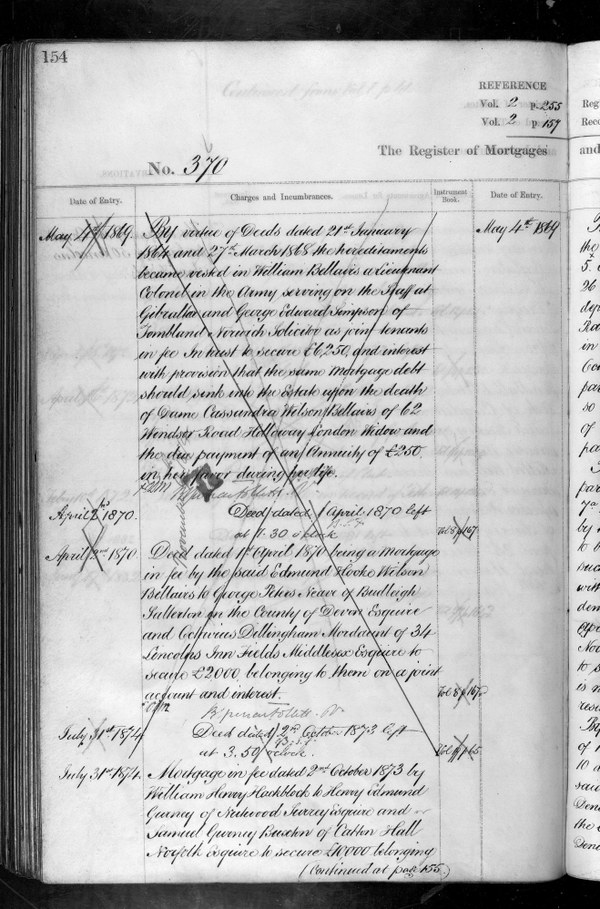 154
REFERENCE
Vol. 2 p. 255
Vol. 2 p 157
The Register of Mortgages
and
No. 370
Date of Entry.
Charges and Incumbrances.
Instrument Book.
Date of Entry.
May 4th 1869
By virtue of Deeds dated 21st January
May 4th 1869
1864 and 27th March 1868 the hereditaments
became vested in William Bellairs a Lieutenant
Colonel in the Army serving on the Staff at
Gibraltar and George Edward Simpson of
Tombland Norwich Solicitor as joint tenants
in fee In trust to secure £6,250 and interest
with provision that the same Mortgage debt
should sink into the Estate upon the death
of Dame Cassandra Wilson Bellairs of 62
Windsor Road Holloway London Widow and
the due payment of an Annuity of £250
in her favor during her life.
April 2nd 1870.
Deed dated 1 April 1870 left
at 1.30 o'clock
Vol 8 p 167
April 2nd 1870
Deed dated 1st April 1870 being a Mortgage
in fee by the said Edmund Hooke Wilson
Bellairs to George Peters Neave of Budleigh
Salterton in the County of Devon Esquire
and Dillingham Mordaunt of 34
Lincolns Inn Fields Middlesex Esquire to
secure £2000 belonging to them on a joint
account and interest.
Vol 8 p 167
July 31st 1874
Deed dated 2nd October 1873 left
at 3.50 o'clock
July 31st 1874.
Mortgage in fee dated 2nd October 1873 by
William Henry Hackblock to Henry Edmund
Gurney of Nutwood Surrey Esquire and
Samuel Gurney Buxton of Catton Hall
Norfolk Esquire to secure £10,000 belonging
(Continued at page 155.)